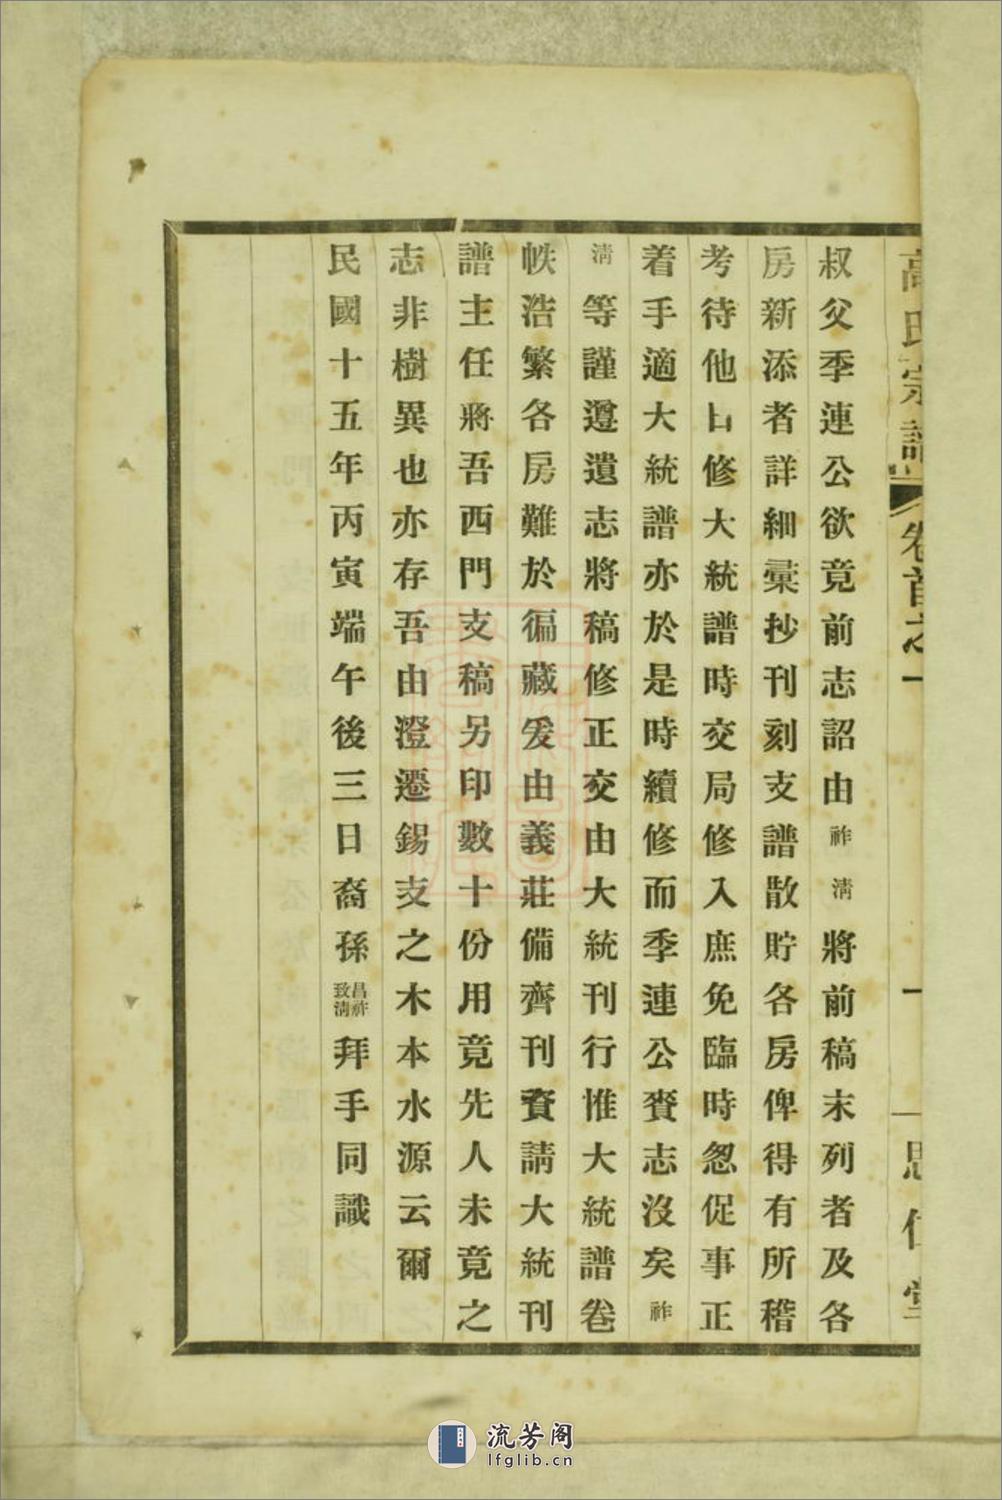 高氏宗譜 卷首之一 一 思仁堂
叔父季連公欲竟前志詔由祚淸將前稿末列者及各
房新添者詳細彙抄刊刻支譜散貯各房俾得有所稽
考待他日修大統譜時交局修入庶免臨時忽促事正
着手適大統譜亦於是時續修而季連公賫志沒矣祚
淸等謹遵遺志將稿修正交由大統刊行惟大統譜卷
帙浩繁各房難於徧藏爰由義莊備齊刊資請大統刊
譜主任將吾西門支稿另印數十份用竟先人未竟之
志非樹異也亦存吾由澄遷錫支之木本水源云爾
民國十五年丙寅端午後三日裔孫昌祚致淸拜手同識
流芳阁
lfglib.cn